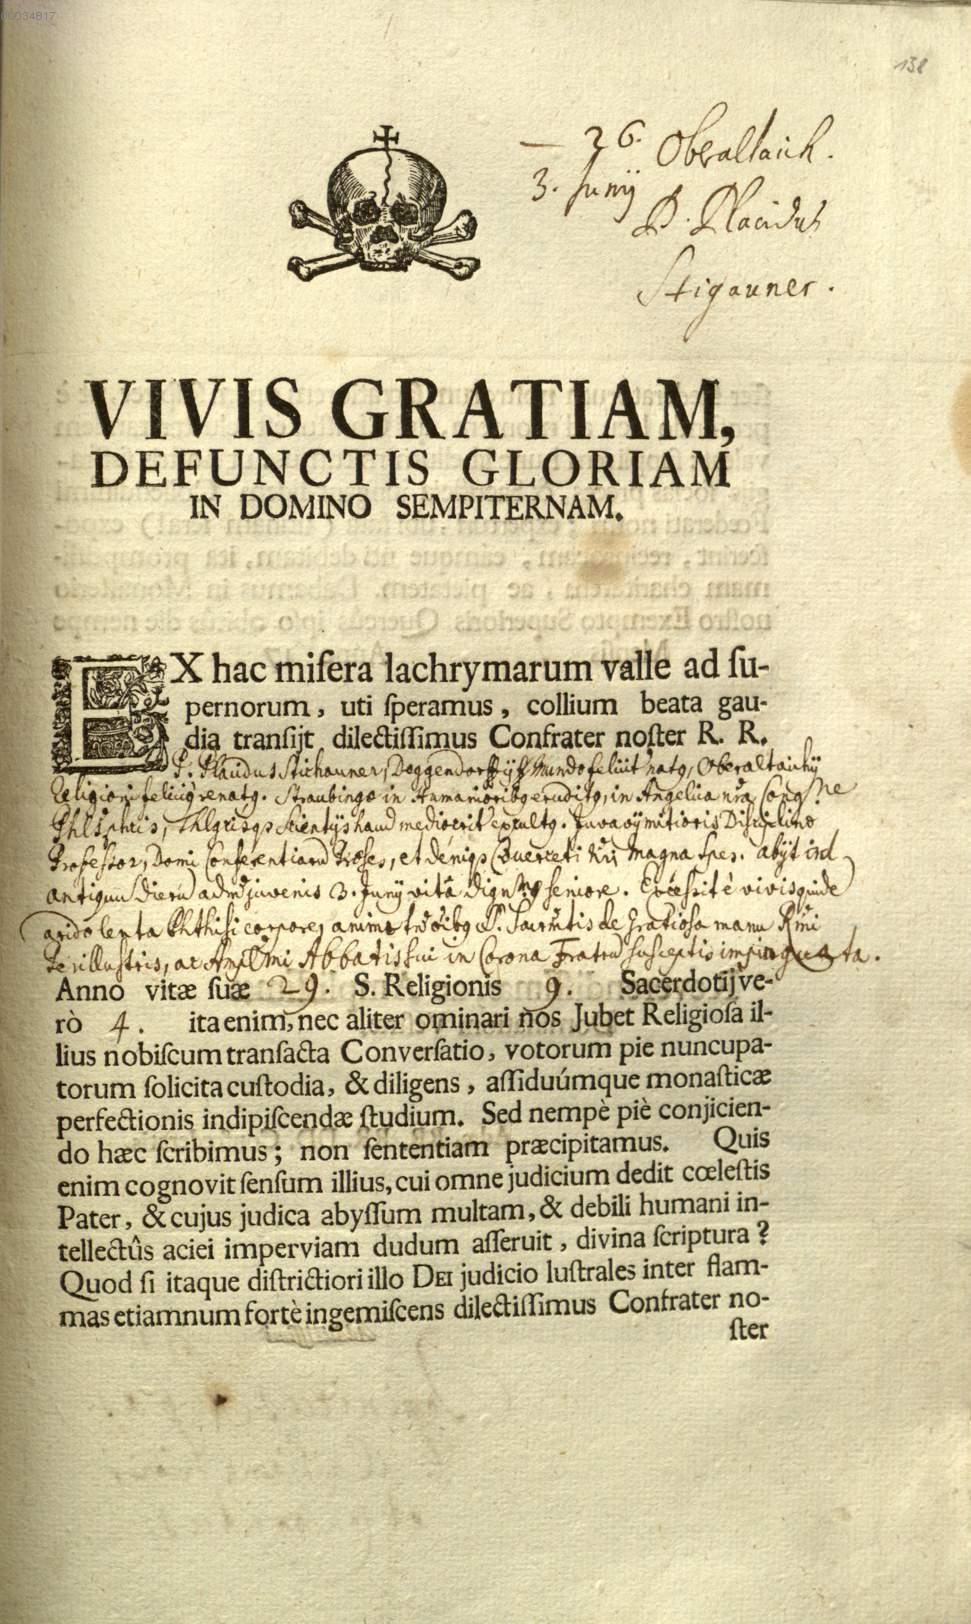 0034817
138
— 26. Oberaltaich.
3. Junij
P. Placidus
Stigauner.
VIVIS GRATIAM,
DEFUNCTIS GLORIAM
IN DOMINO SEMPITERNAM.
EX hac miſera lachrymarum valle ad ſu-
pernorum, uti ſperamus, collium beata gau-
dia tranſijt dilectiſſimus Confrater noſter R. R.
P. Placidus Stichauner, Deggendorffij Mundo natq, Oberaltaichij
Religioni renatq. Straubingæ in in Angelica nrã Congne
haud mediocrit excultq. Disciplinæ
Professor, Domi Conferentiarũ Præses, et deniq magna spes. abijt
antiquũ Dierũ juvenis 3. Junij vitâ seniore. Excessit è vivis
arido lenta Phthisi corpore, de gratiosa manu Rmi
ac Abbatis sui in Corona Fratrũ susceptis
Anno vitæ ſuæ 29. S. Religionis 9. Sacerdotij ve-
rò 4. ita enim, nec aliter ominari nos Jubet Religioſa il-
lius nobiſcum tranſacta Converſatio, votorum pie nuncupa-
torum ſolicita cuſtodia, & diligens, aſſiduúmque monaſticæ
perfectionis indipiſcendæ ſtudium. Sed nempè piè conjicien-
do hæc ſcribimus; non ſententiam præcipitamus. Quis
enim cognovit ſenſum illius, cui omne judicium dedit cœleſtis
Pater, & cujus judica abyſſum multam, & debili humani in-
tellectûs aciei imperviam dudum aſſeruit, divina ſcriptura?
Quod ſi itaque diſtrictiori illo DEI judicio luſtrales inter flam-
mas etiamnum fortè ingemiſcens dilectiſſimus Confrater no-
ſter